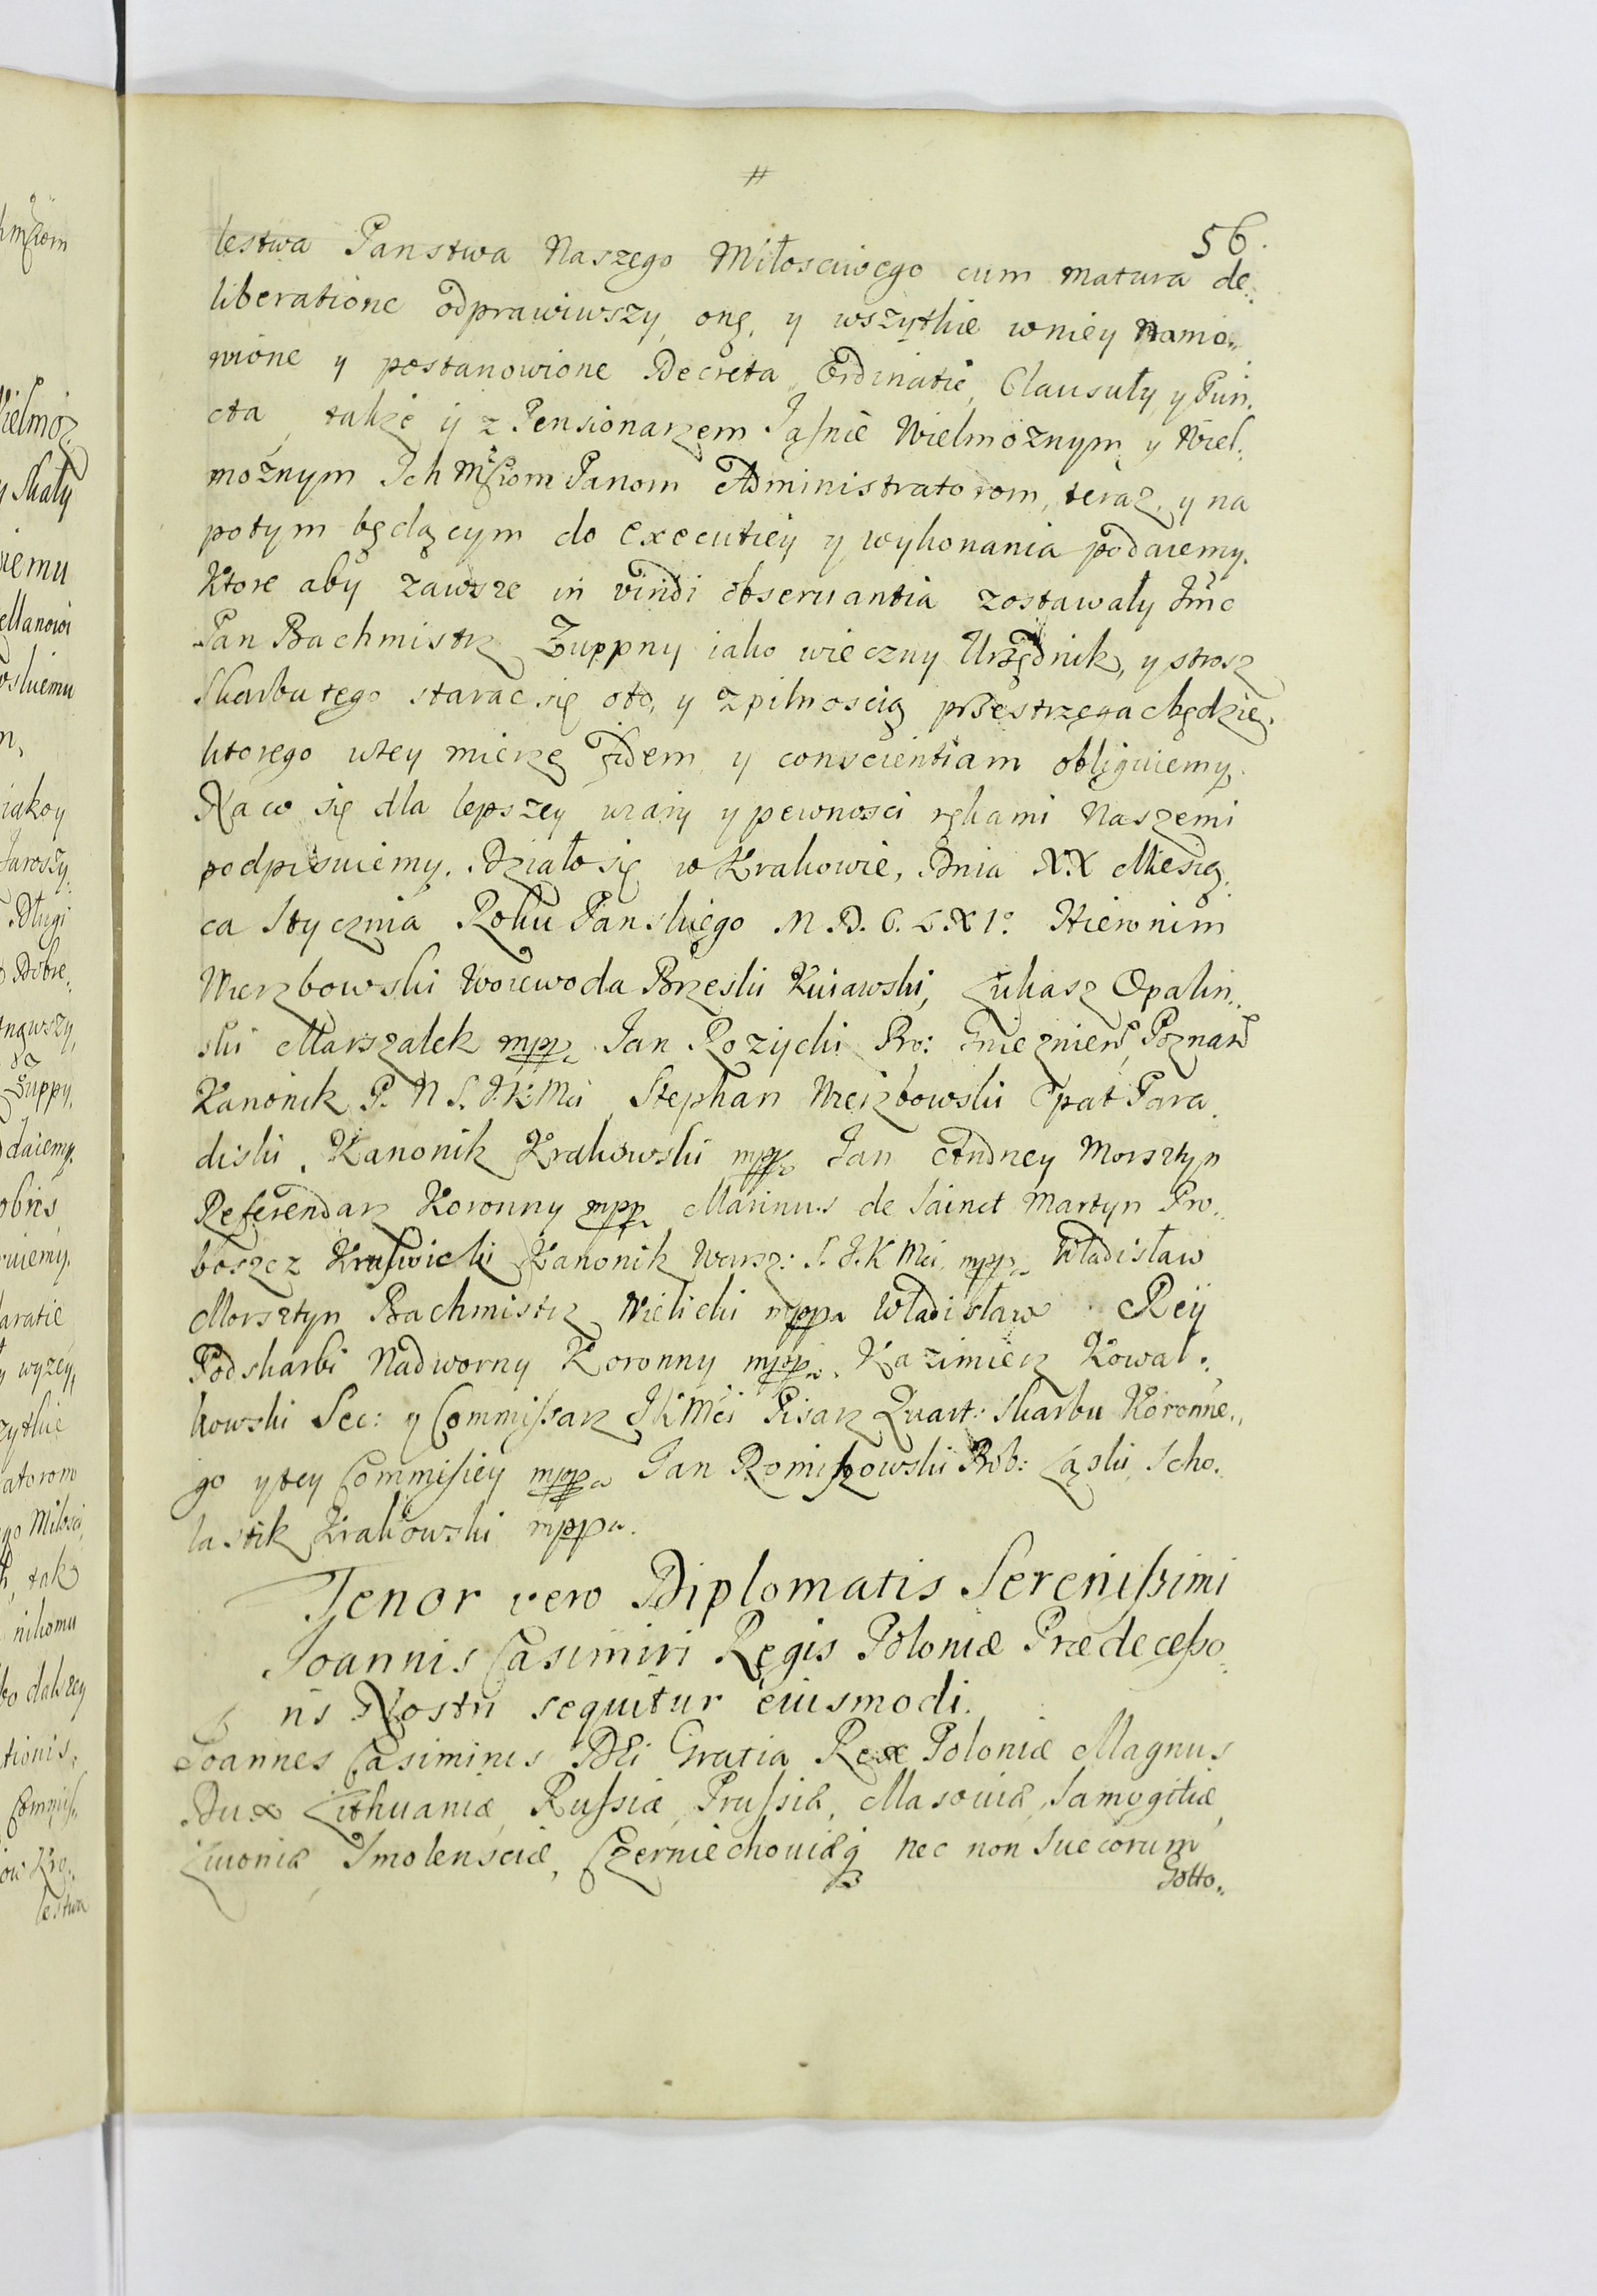 56.
lestwa Panstwa Naszego Miłosciwego cum matura de„
liberatione odprawiwszy onę, y wszytkie wniey namo„
wione y postanowione Decreta, Ordinatie, Clausuły, y Pun„
cta, takze y z Pensionarzem Jaśnie Wielmoznym, y Wiel„
moznym Ich Mściom Panom Administratorom, teraz, y na
potym będącym do executiey y wykonania podaiemy.
Ktore aby zawsze in viridi observantia zostawały Jmc
Pan Bachmistrz Zuppny iako wieczny Urzędnik, y stroz
Skarbu tego starac się oto, y zpilnoscią przestrzegac będzie.
ktorego wtey mierze fidem y conscientiam obliguiemy.
Na co się dla lepszey wiary y pewnosci rękami Naszemi
podpisuiemy. Działo się w Krakowie, Dnia XX Miesią„
ca Stycznia Roku Panskiego M. D. C. L X I° Hieronim
Wierzbowski Woiewoda Brzeski Kuiawski, Łukasz Opalin„
ski Marszalek mpp. Jan Rozycki Pro: Gniezniens, Poznans
Kanonik P. N S. J.K Mci Stephan Wierzbowski Opat Para„
diski, Kanonik Krakowski mpp. Jan Andrzey Morsztyn
Referendarz Koronny mpp. Marinus de Sainct Martyn Pro„
boszcz Kruswicki Kanonik Warsz: S. J.K Mci. mpp. Władisław
Morsztyn Bachmistrz Wielicki mppa Władisław Reij
Podskarbi Nadworny Koronny mpp. Kazimierz Kowal„
kowski Sec: y Commissarz JKMci Pisarz Quart: Skarbu Koronne„
go ytey Commissiey mppa Jan Romiszowski Prob: Łąski Scho„
lastik Krakowski mppa.
Tenor vero Diplomatis Serenissimi
Joannis Casimiri Regis Poloniæ Prædecesso„
ris Nostri sequitur eiusmodi.
Joannes Casimirus Dei Gratia Rex Poloniæ Magnus
Dux Lithuaniæ, Russiæ, Prussiæ, Masoviæ, Samogitiæ,
Livoniæ Smolensciæ, Czerniechoviæq nec non Suecorum
Gotto„